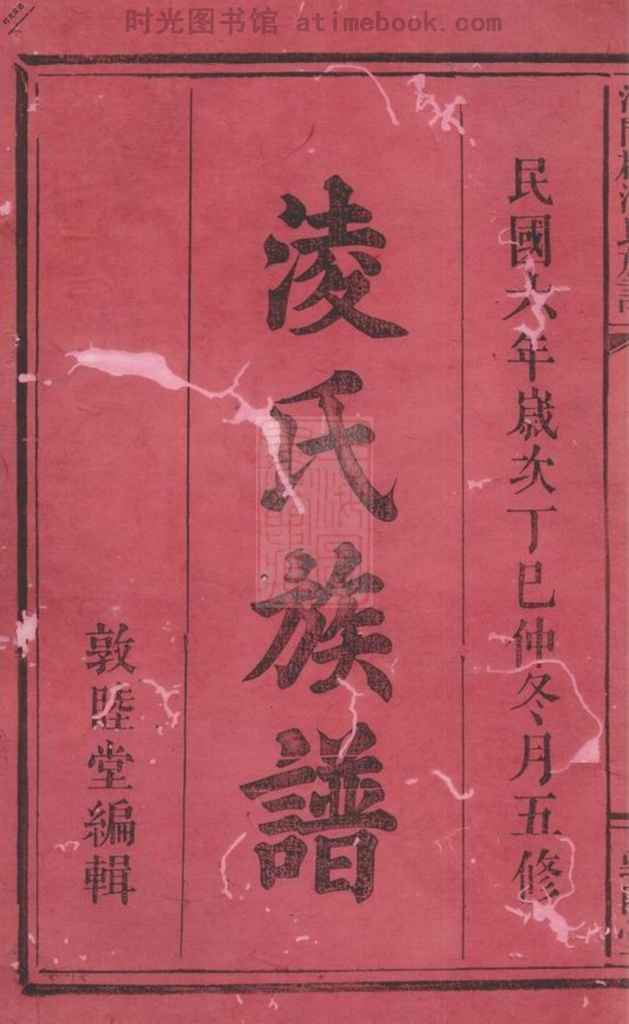 时光图书馆 atimebook.com
民國六年歲次丁巳仲冬月五修
淩氏族譜
敦睦堂編輯